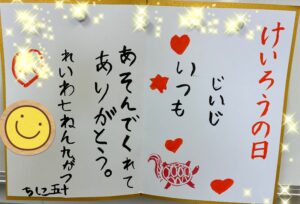 けいろうの日
じいじ
いつも
あそんでくれて
ありがとう。
れいわ七ねん九がつ